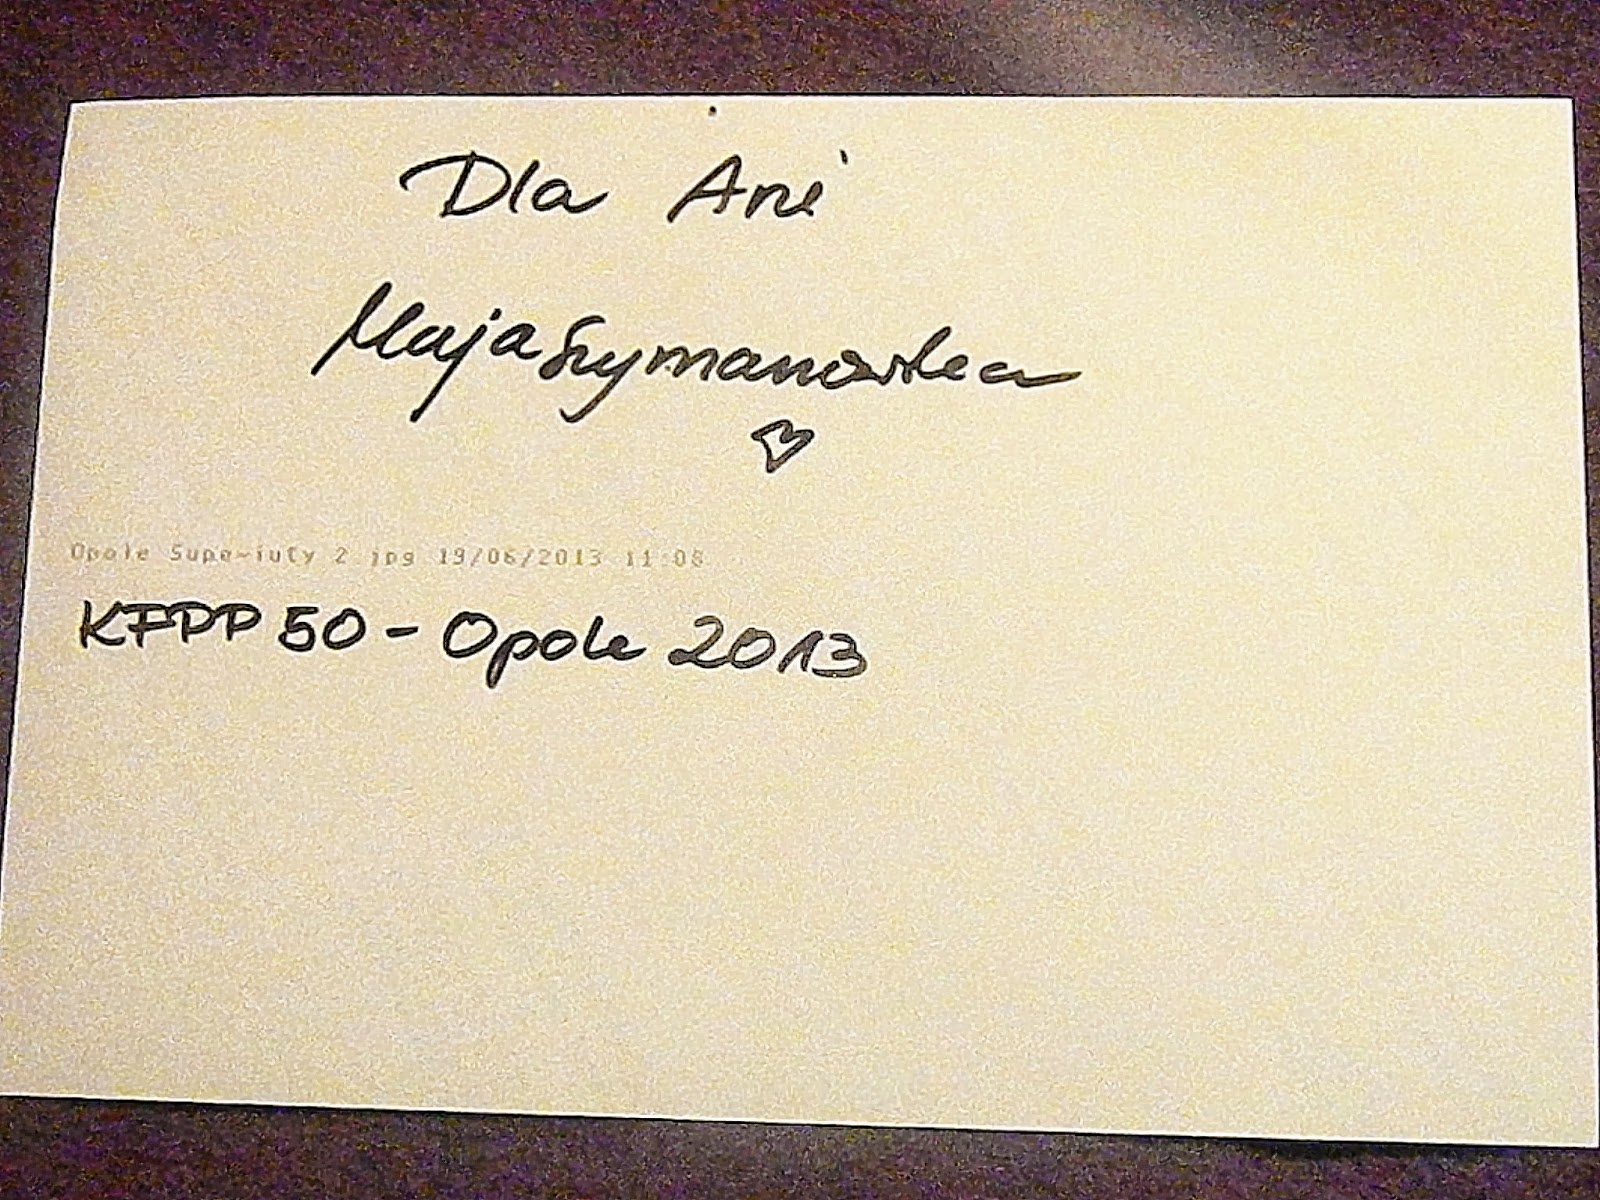 Dla Ani
Maja Szymanowska
Opole Superiuty 2.jpg 19/06/2013 11:08
KFPP 50 - Opole 2013